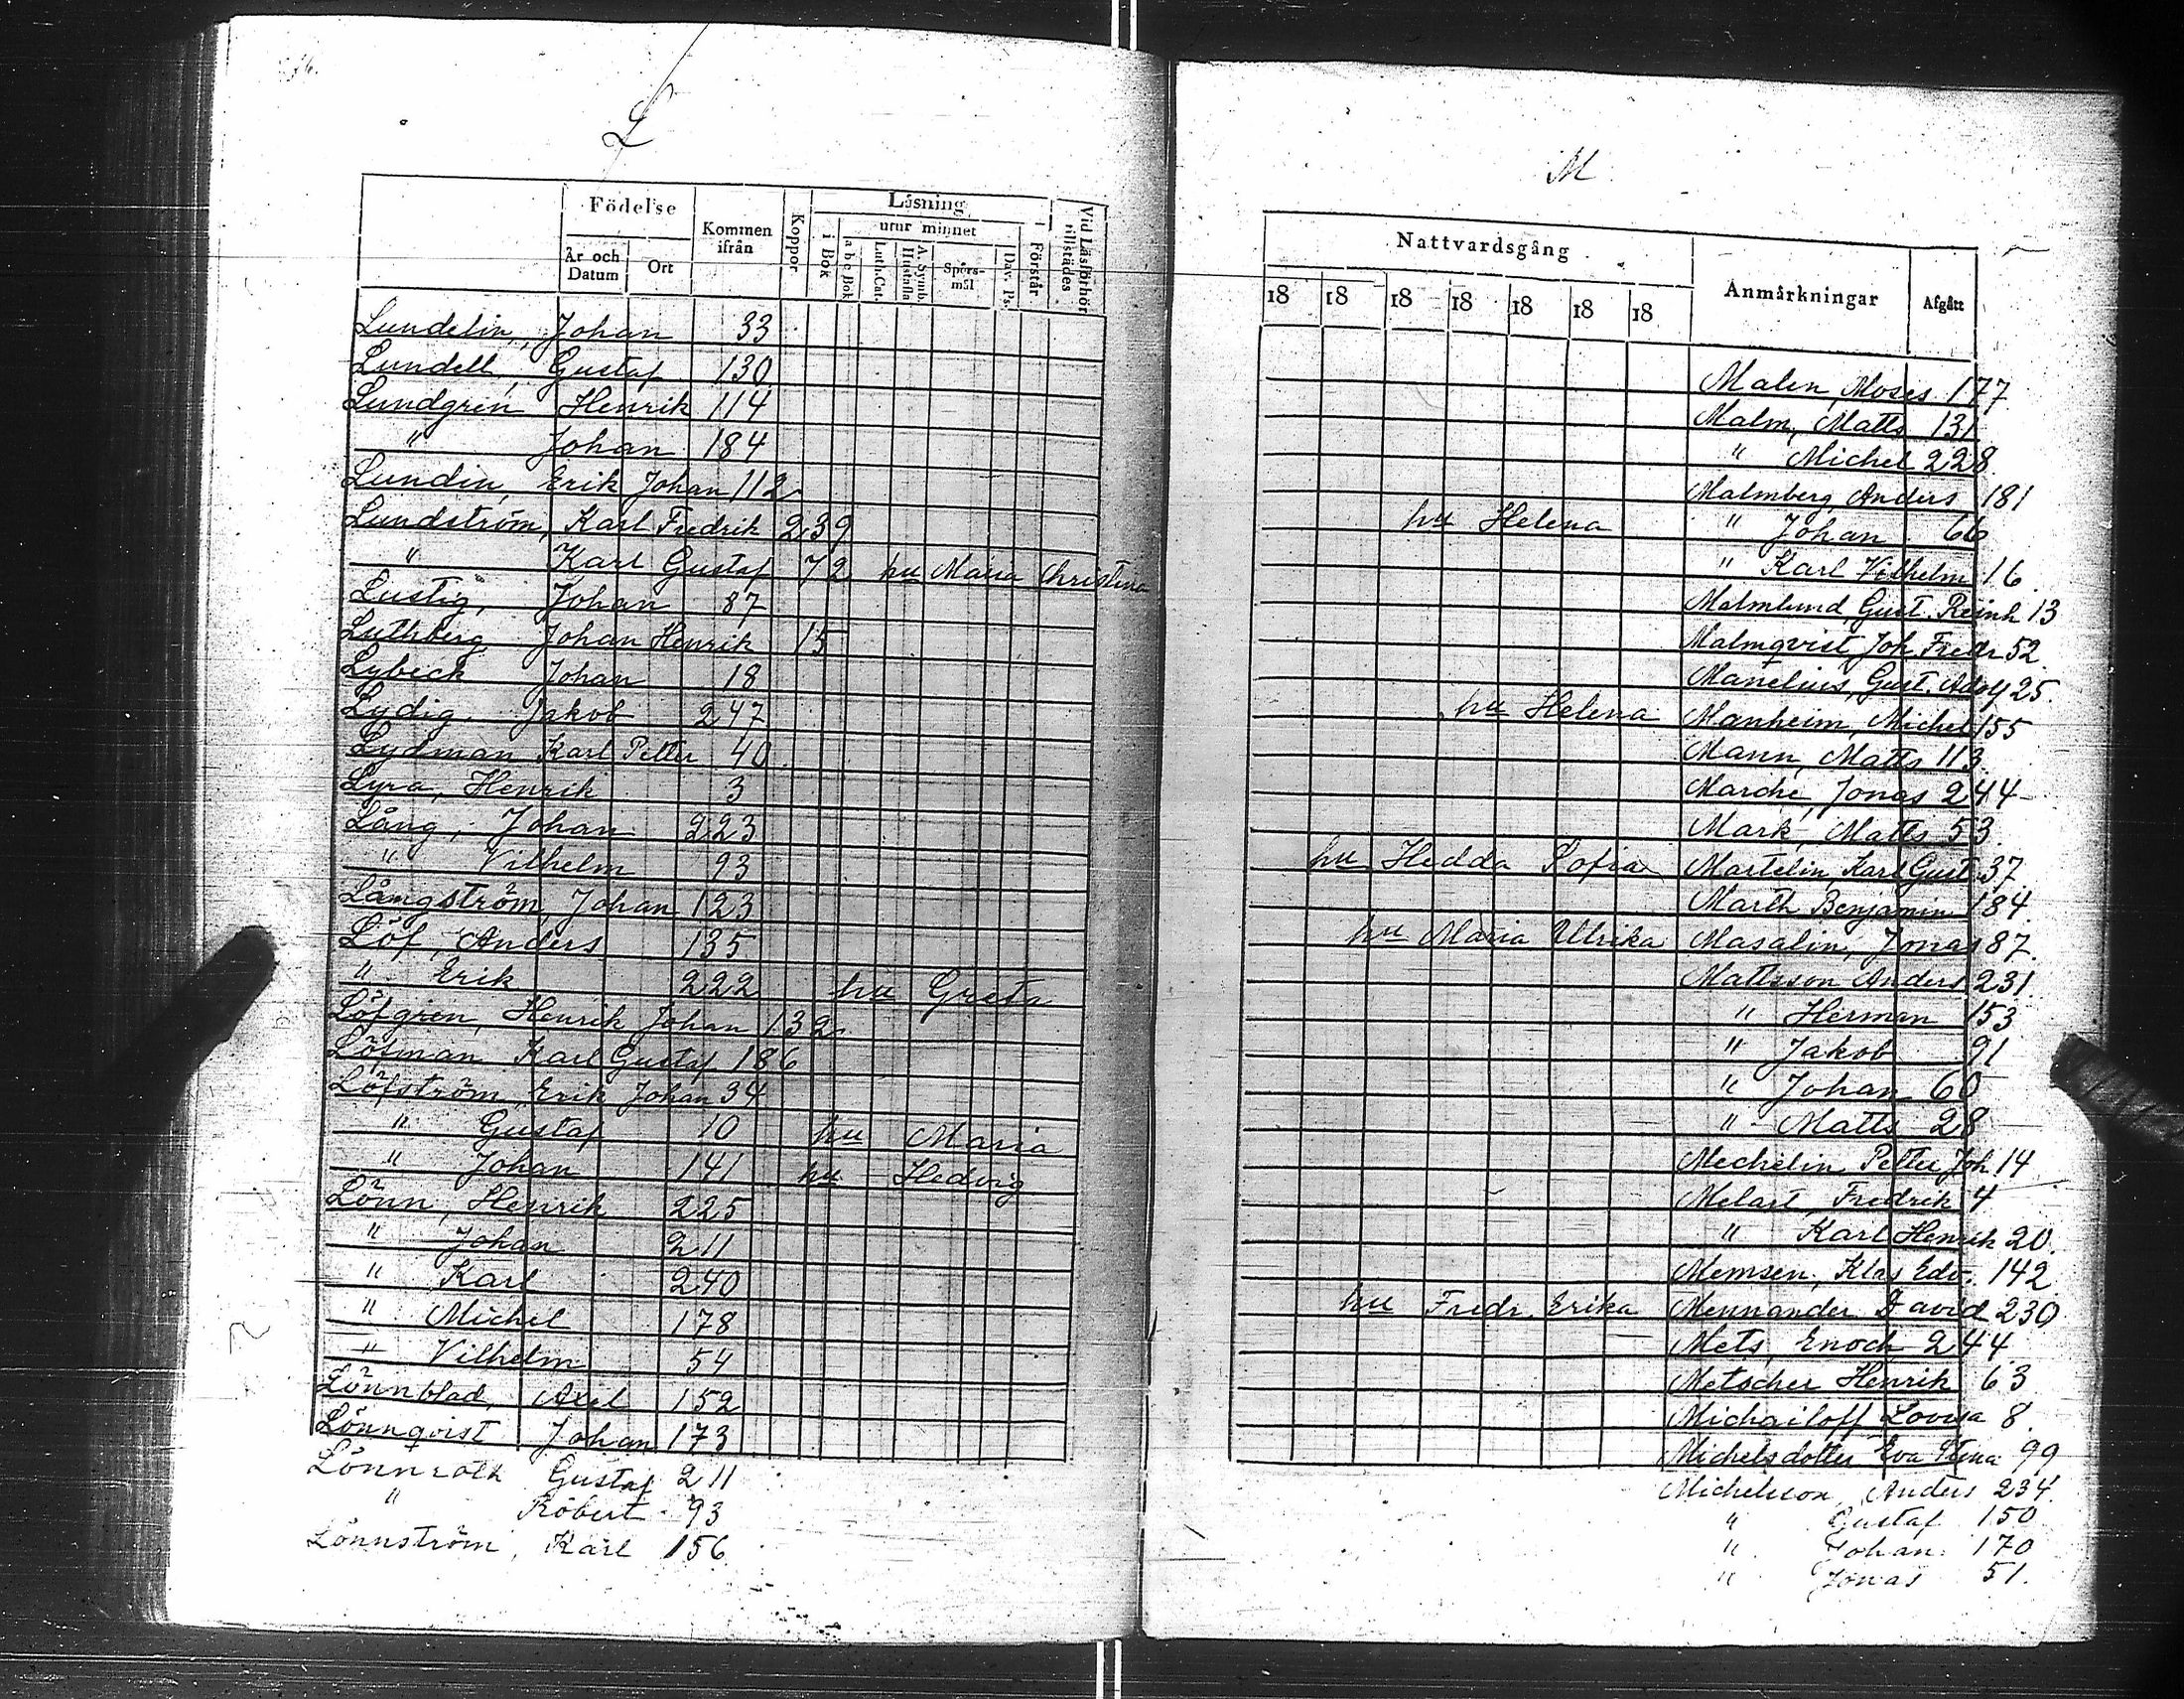 L
Födelse
Kommen ifrån
Koppor
Läsning
Förstår
Vid Läsförhör tillstädes
År och Datum
Ort
i Bok
utur minnet
a b c Bok
Luth. Cat.
A. Symb. Hustafla
Spörsmål
Dav. Ps.
Lundelin, Johan 33
Lundell, Gustaf 130
Lundgren Henrik 114
" Johan 184
Lundin, Erik Johan 112
Lundström, Karl Fredrik 239
" Karl Gustaf 72 hu Maria Christina
Lustig, Johan 87
Luthberg Johan Henrik 15
Lybeck Johan 18
Lydig. Jakob 247
Lydman Karl Petter 40
Lyra, Henrik 3
Lång, Johan 223
" Vilhelm 93
Långström, Johan 123
Löf, Anders 135
" Erik 222 hu Greta
Löfgren, Henrik Johan 132
Löfman Karl Gustaf 186
Löfström, Erik Johan 34
" Gustaf 10 hu Maria
" Johan 141 hu Hedvig
Lönn, Henrik 225
" Johan 211
" Karl 240
" Michel 178
" Vilhelm 54
Lönnblad, Axel 152
Lönnqvist Johan 173
Lönnroth Gustaf 211
" Robert 93
Lönnström, Karl 156
M
Nattvardsgång
Anmärkningar
Afgått
18 18 18 18 18 18 18
Malen, Moses 177
Malm, Matts 131
" Michel 228
Malmberg, Anders 181
hu Helena " Johan 66
" Karl Vilhelm 16
Malmlund, Gust. Reinh 13
Malmqvist, Joh. Fredr 52
Manelius, Gust. Adolf 25
hu Helena Manheim, Michel 155
Mann, Matts 113
Marche, Jonas 244
Mark, Matts 53
hu Hedda Sofia Martelin, Karl Gust. 37
Marth Benjamin 184
hu Maria Ulrika Masalin, Jonas 87
Mattsson Anders 231
" Herman 153
" Jakob 91
" Johan 60
" Matts 28
Mechelin Petter Joh 14
Melart Fredrik 4
" Karl Henrik 20
Memsen, Klas Edv. 142
hu Fredr. Erika Mennander David 230
Mets, Enoch 244
Metscher Henrik 63
Michailoff Lovisa 8
Michelsdotter Eva Stina 99
Michelsson, Anders 234
" Gustaf 150
" Johan 170
" Jonas 51